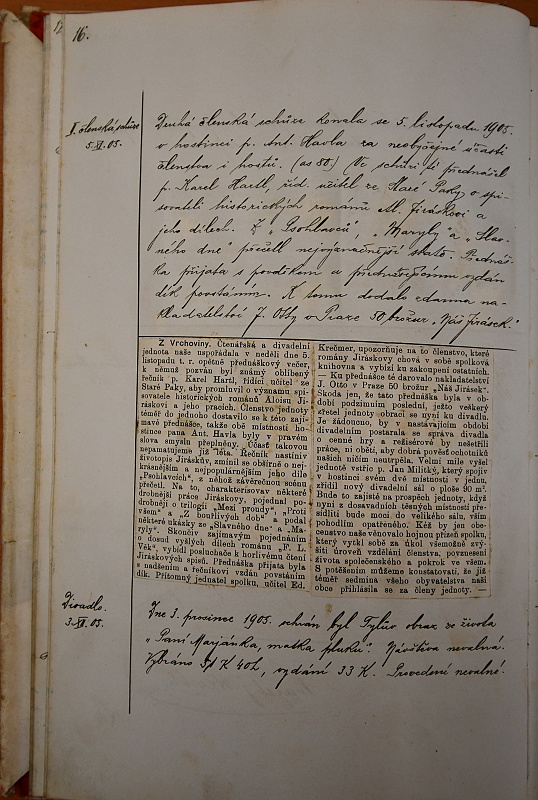 16.
I. členská schůze
5. XI. 05.
Druhá členská schůze konala se 5. listopadu 1905.
v hostinci p. Ant. Havla za neobyčejné účasti
členstva i hostů. (as 80.) Ve schůzi té přednášel
p. Karel Hartl, říd. učitel ze Staré Paky o spi-
sovateli historických románů Al. Jiráskovi a
jeho dílech. Z „Psohlavců", „Maryly" a „Slav-
ného dne" přečetl nejvýznačnější statě. Přednáš-
ka přijata s povděkem a přednášejícímu vzdán
dík povstáním. K tomu dodalo zdarma na-
kladatelství J. Otty v Praze 50 brožur „Náš Jirásek."
Z Vrchoviny. Čtenářská a divadelní
jednota naše uspořádala v neděli dne 5.
listopadu t. r. opětně přednáškový večer,
k němuž pozván byl známý oblíbený
řečník p. Karel Hartl, řídící učitel ze
Staré Paky, aby promluvil o významu spi-
sovatele historických románů Aloisu Ji-
ráskovi a jeho pracích. Členstvo jednoty
téměř do jednoho dostavilo se k této zají-
mavé přednášce, takže obě místnosti ho-
stince pana Ant. Havla byly v pravém
slova smyslu přeplněny. Účasť takovou
nepamatujeme již léta. Řečník nastíniv
životopis Jiráskův, zmínil se obšírně o nej-
krásnějším a nejpopulárnějším jeho díle
„Psohlavcích", z něhož závěrečnou scénu
přečetl. Na to, charakterisovav některé
drobnější práce Jiráskovy, pojednal po-
drobněji o trilogii „Mezi proudy", „Proti
všem" a „Z bouřlivých dob" a podal
některé ukázky ze „Slavného dne" a „Ma-
ryly". Skončiv zajímavým pojednáním
o dosud vyšlých dílech románu „F. L.
Věk", vybídl posluchače k horlivému čtení
Jiráskových spisů. Přednáška přijata byla
s nadšením a řečníkovi vzdán povstáním
dík. Přítomný jednatel spolku, učitel Ed.
Krečmer, upozorňuje na to členstvo, které
romány Jiráskovy chová v sobě spolková
knihovna a vybízí ku zakoupení ostatních.
— Ku přednášce té darovalo nakladatelství
J. Otto v Praze 50 brožur „Náš Jirásek".
Škoda jen, že tato přednáška byla v ob-
dobí podzimním poslední, ježto veškerý
zřetel jednoty obrací se nyní ku divadlu.
Je žádoucno, by v nastávajícím období
divadelním postarala se správa divadla
o cenné hry a režisérové by nešetřili
práce, ni oběti, aby dobrá pověsť ochotníků
našich ničím neutrpěla. Velmi mile vyšel
jednotě vstříc p. Jan Militký, který spojiv
v hostinci svém dvě místnosti v jednu,
zřídil nový divadelní sál o ploše 90 m².
Bude to zajisté na prospěch jednoty, když
nyní z dosavadních těsných místností pře-
sídliti bude moci do velikého sálu, vše-
pohodlím opatřeného. Kéž by jen obe-
censtvo naše věnovalo hojnou přízeň spolku,
který vytkl sobě za úkol všemožně zvý-
šiti úroveň vzdělání členstva, povznesení
života společenského a pokrok ve všem.
S potěšením můžeme konstatovati, že již
téměř sedmina všeho obyvatelstva naší
obce přihlásila se za členy jednoty. —
Divadlo.
3. XII. 05.
Dne 3. prosince 1905 sehrán byl Tylův obraz ze života
„Paní Marjánka, matka pluku." Návštěva nevalná.
Vybráno K 40 h, vydání 33 K. Provedení nevalné.